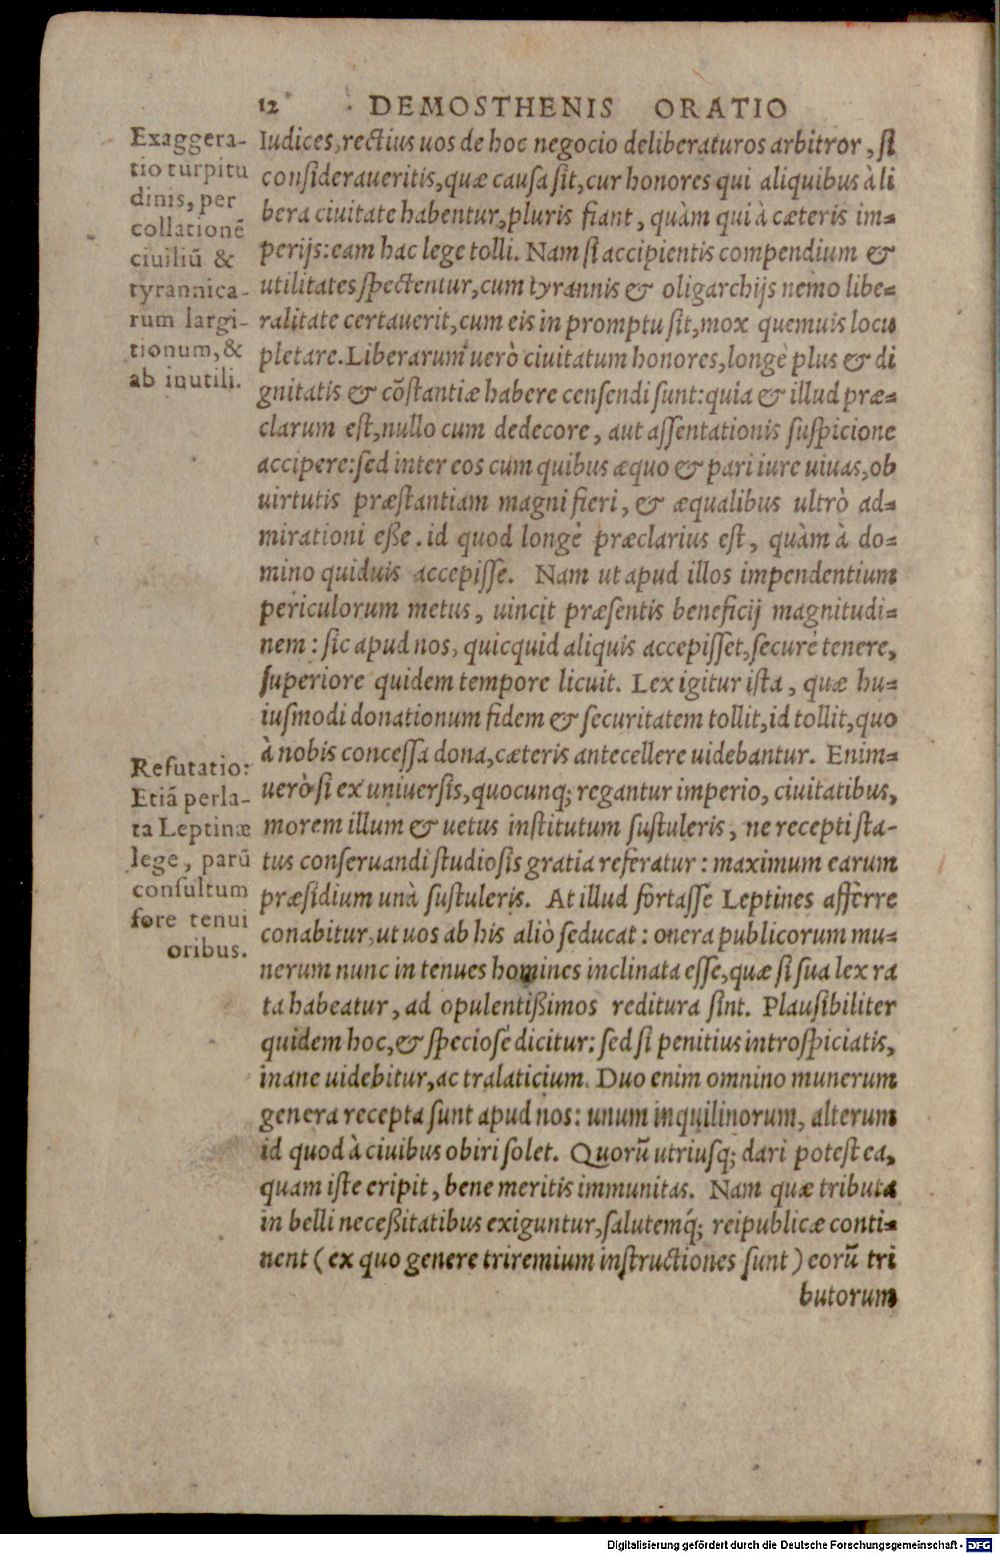 12 DEMOSTHENIS ORATIO
Exaggera-
tio turpitu
dinis, per
collationē
ciuiliū &
tyrannica-
rum largi-
tionum, &
ab inutili.
Iudices, rectius uos de hoc negocio deliberaturos arbitror, si
consideraueritis, quæ causa sit, cur honores qui aliquibus à li
bera ciuitate habentur, pluris fiant, quàm qui à cæteris im-
perijs: eam hac lege tolli. Nam si accipientis compendium &
utilitates spectentur, cum tyrannis & oligarchijs nemo libe-
ralitate certauerit, cum eis in promptu sit, mox quemuis locu
pletare. Liberarum uerò ciuitatum honores, longè plus & di
gnitatis & cōstantiæ habere censendi sunt: quia & illud præ-
clarum est, nullo cum dedecore, aut assentationis suspicione
accipere: sed inter eos cum quibus æquo & pari iure uiuas, ob
uirtutis præstantiam magni fieri, & æqualibus ultrò ad-
mirationi eße. id quod longè præclarius est, quàm à do-
mino quiduis accepisse. Nam ut apud illos impendentium
periculorum metus, uincit præsentis beneficij magnitudi-
nem: sic apud nos, quicquid aliquis accepisset, securè tenere,
superiore quidem tempore licuit. Lex igitur ista, quæ hu-
iusmodi donationum fidem & securitatem tollit, id tollit, quo
à nobis concessa dona, cæteris antecellere uidebantur. Enim-
uerò si ex uniuersis, quocunq; regantur imperio, ciuitatibus,
morem illum & uetus institutum sustuleris, ne recepti sta-
tus conseruandi studiosis gratia referatur: maximum earum
præsidium unà sustuleris. At illud fortasse Leptines afferre
conabitur, ut uos ab his aliò seducat: onera publicorum mu-
nerum nunc in tenues homines inclinata esse, quæ si sua lex ra
ta habeatur, ad opulentißimos reditura sint. Plausibiliter
quidem hoc, & speciosè dicitur: sed si penitius introspiciatis,
inane uidebitur, ac tralaticium. Duo enim omnino munerum
genera recepta sunt apud nos: unum inquilinorum, alterum
id quod à ciuibus obiri solet. Quorū utriusq; dari potest ea,
quam iste eripit, bene meritis immunitas. Nam quæ tributa
in belli neceßitatibus exiguntur, salutemq́; reipublicæ conti-
nent (ex quo genere triremium instructiones sunt) eorū tri
butorum
Refutatio:
Etiā perla-
ta Leptinæ
lege, parū
consultum
fore tenui
oribus.
Digitalisierung gefördert durch die Deutsche Forschungsgemeinschaft - DFG